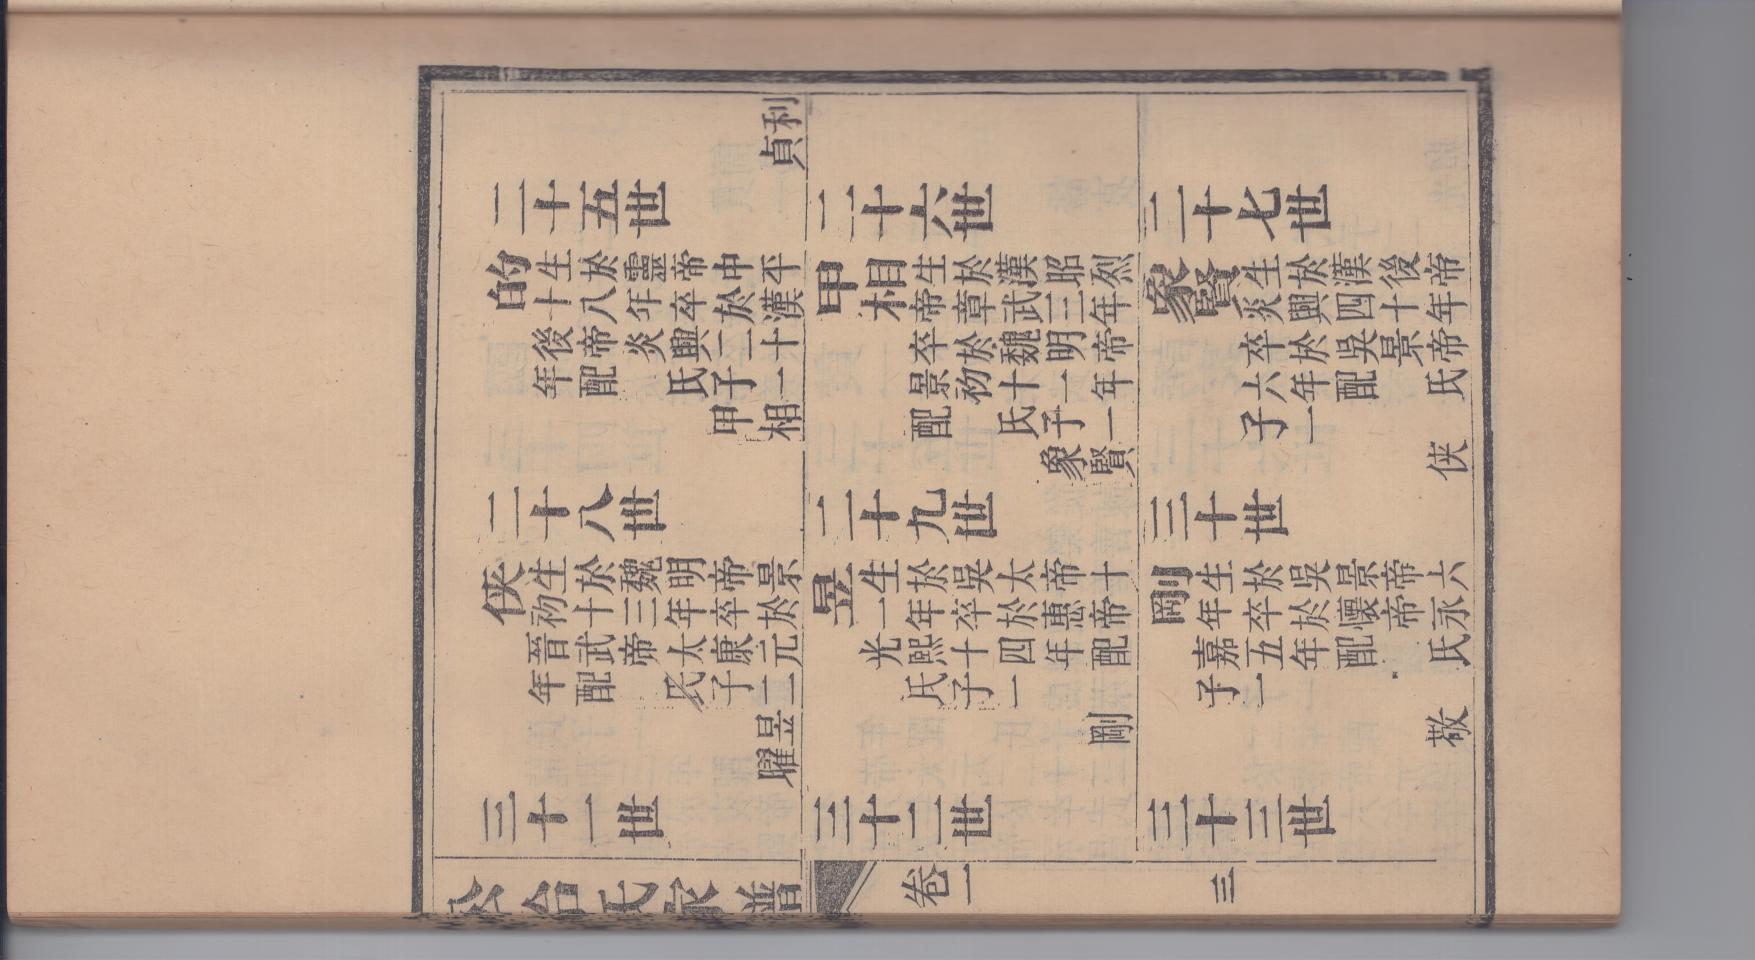 利
貞
二十五世
的
生於靈帝中平
十八年卒於漢
後帝炎興二十
年配　氏子一
甲相
二十六世
甲相
生於漢昭烈
帝章武三年
卒於魏明帝
景初十一年
配　氏子一
象賢
二十七世
象賢
生於漢後帝
炎興四十年
卒於吳景帝
六年配　氏
子一
俠
二十八世
俠
生於魏明帝景
初十三年卒於
晉武帝太康元
年配　氏子二
昱
曜
二十九世
昱
生於吳太帝十
一年卒於惠帝
光熙十四年配
氏子一
剛
三十世
剛
生於吳景帝六
年卒於懷帝永
嘉五年配　氏
子一
敬
三十一世
三十二世
三十三世
台氏家譜
卷一
三